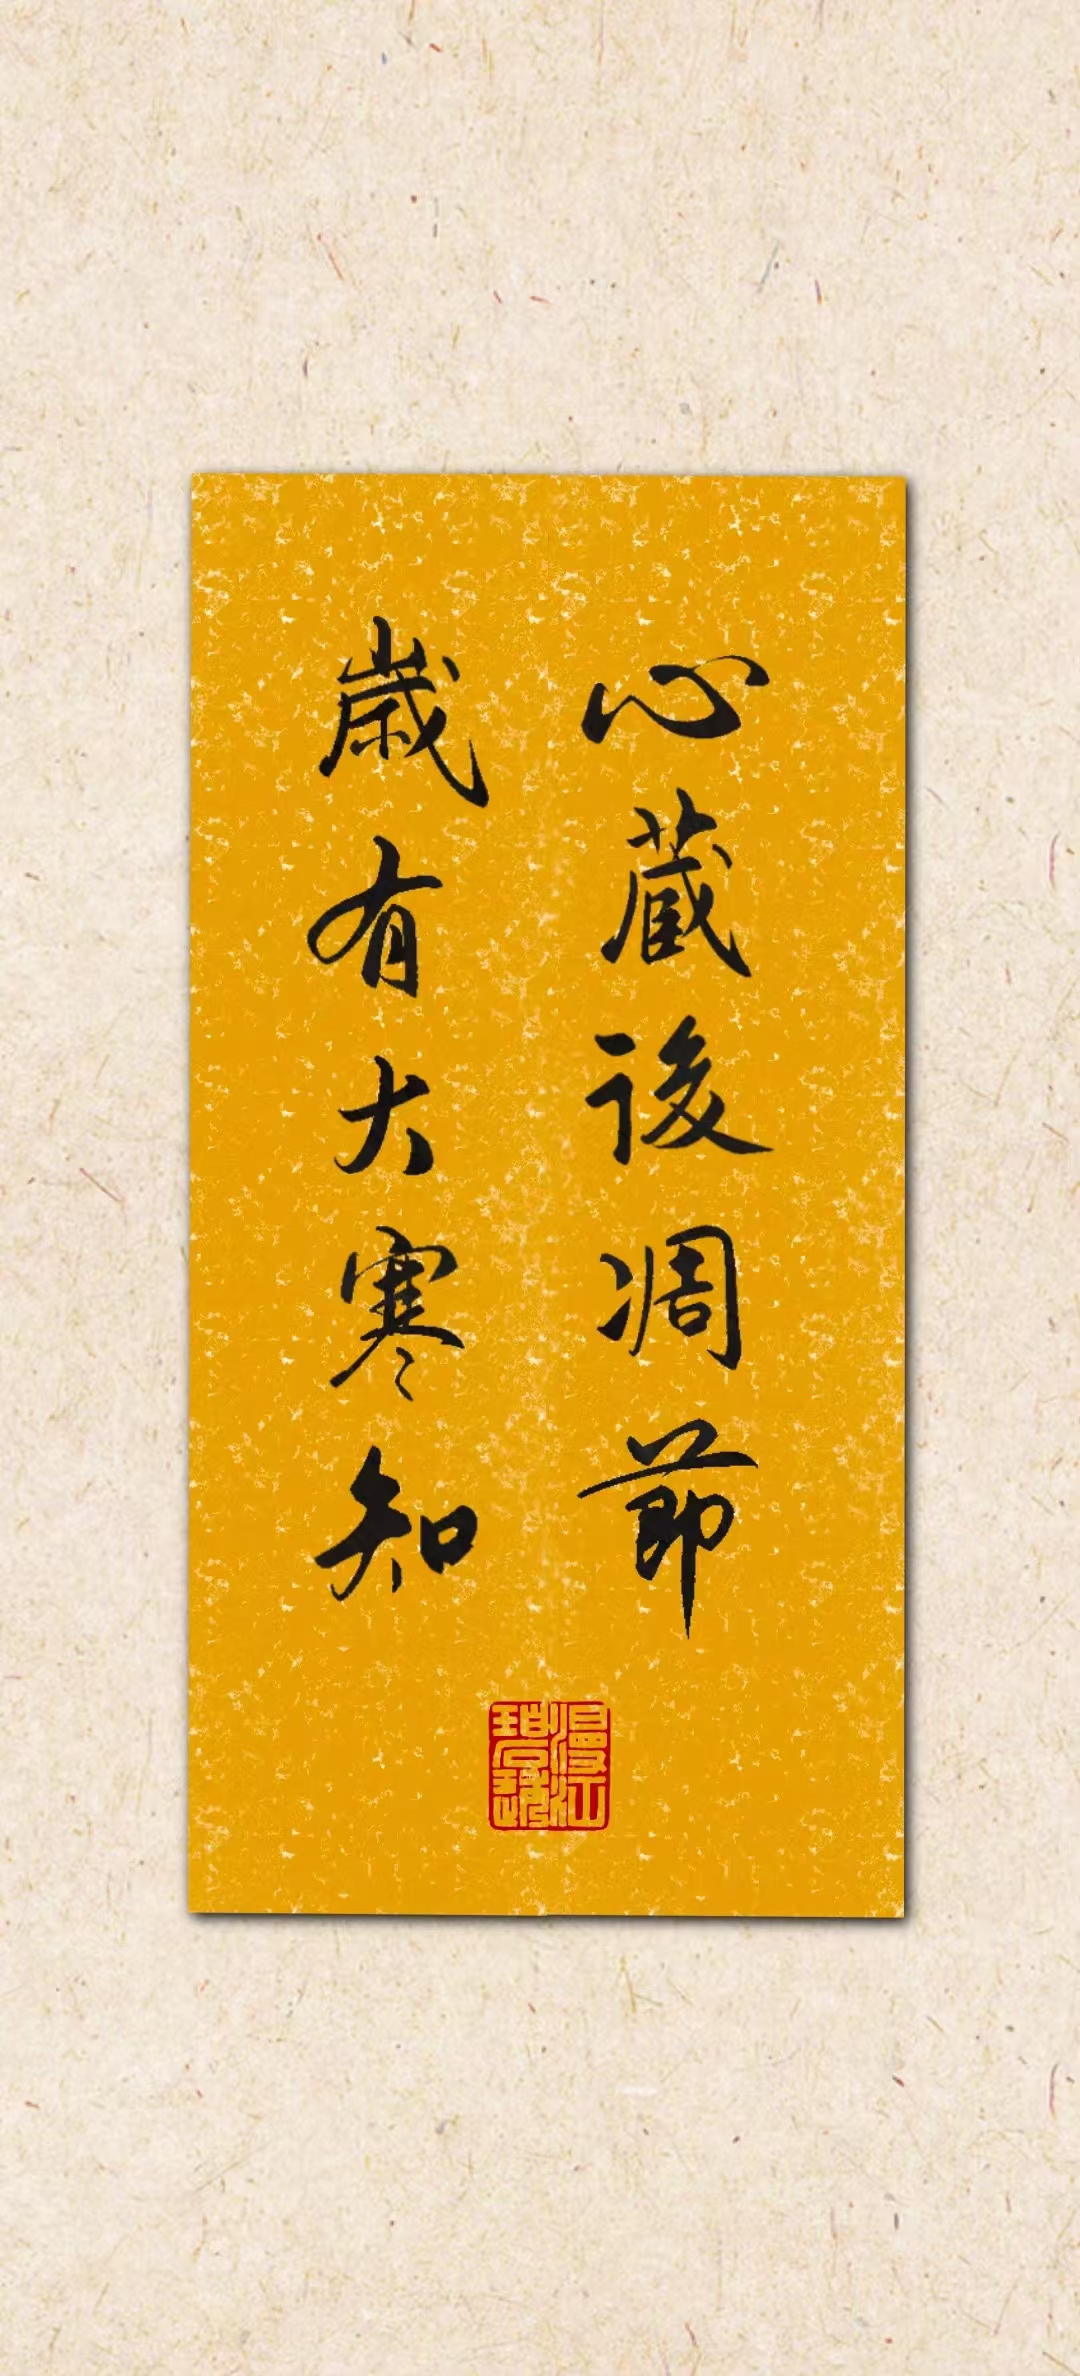 心藏後凋節
歲有大寒知